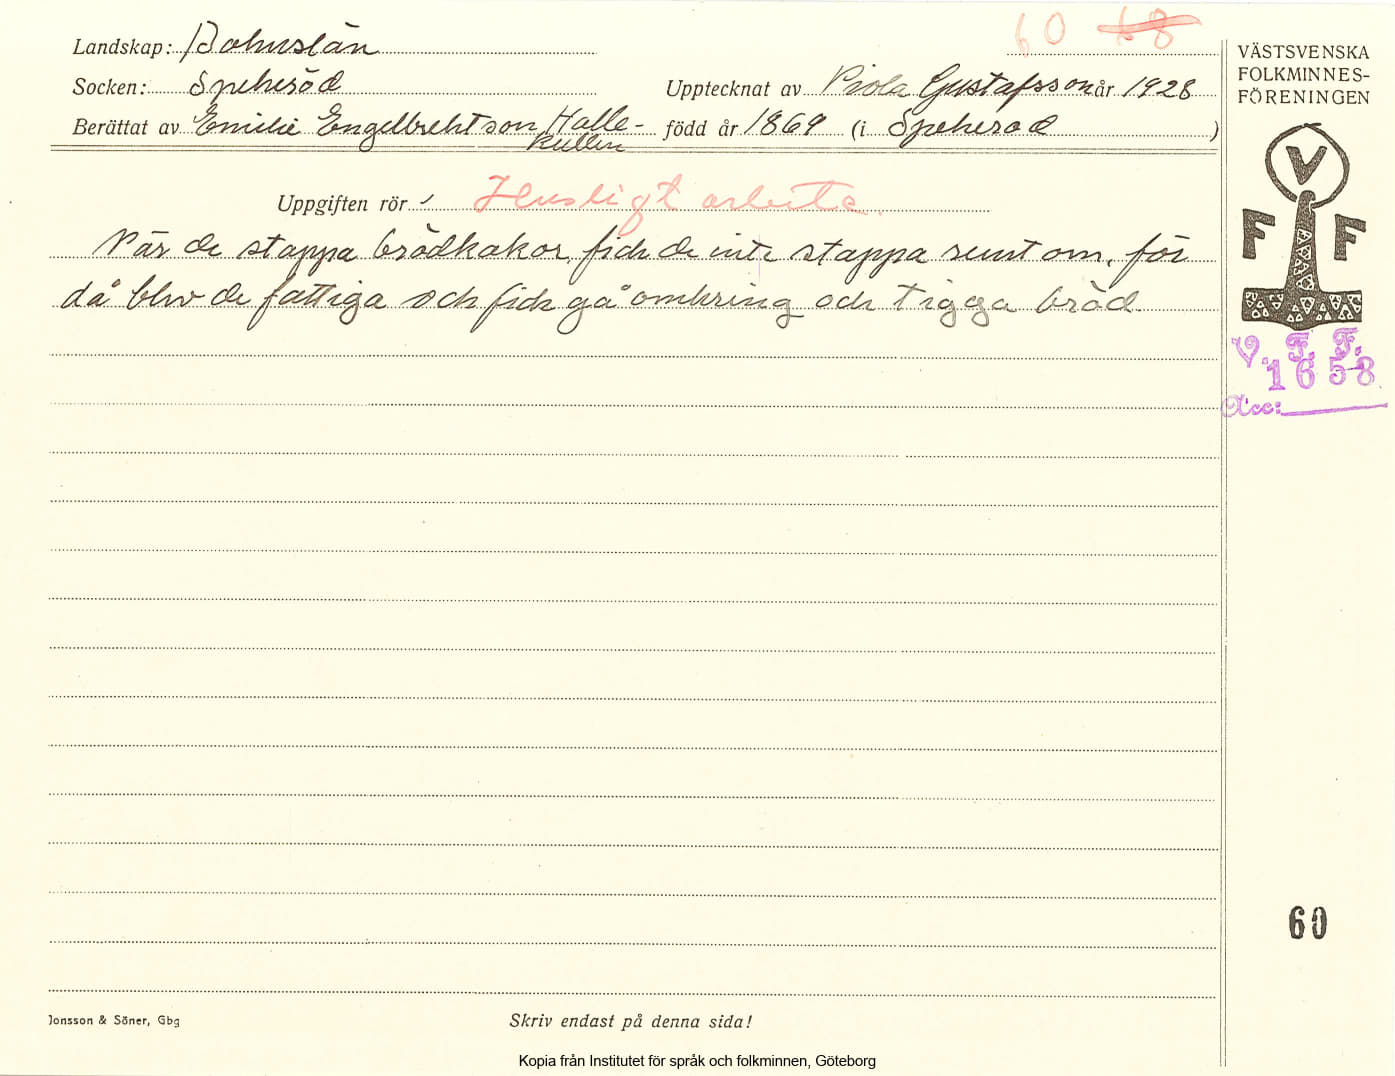 60 68
Landskap: Bohuslän
Socken: Spekeröd
Upptecknat av Viola Gustafsson år 1928
Berättat av Emilie Engelbrektson, Halle-
kullen
född år 1869 (i Spekeröd)
VÄSTSVENSKA
FOLKMINNES-
FÖRENINGEN
V
F F
Uppgiften rör Husligt arbete.
När de stappa brödkakor, fick de inte stappa runt om, för
då blev de fattiga och fick gå omkring och tigga bröd.
V. F. F.
1658
Acc:
60
Jonsson & Söner, Gbg
Skriv endast på denna sida!
Kopia från Institutet för språk och folkminnen, Göteborg